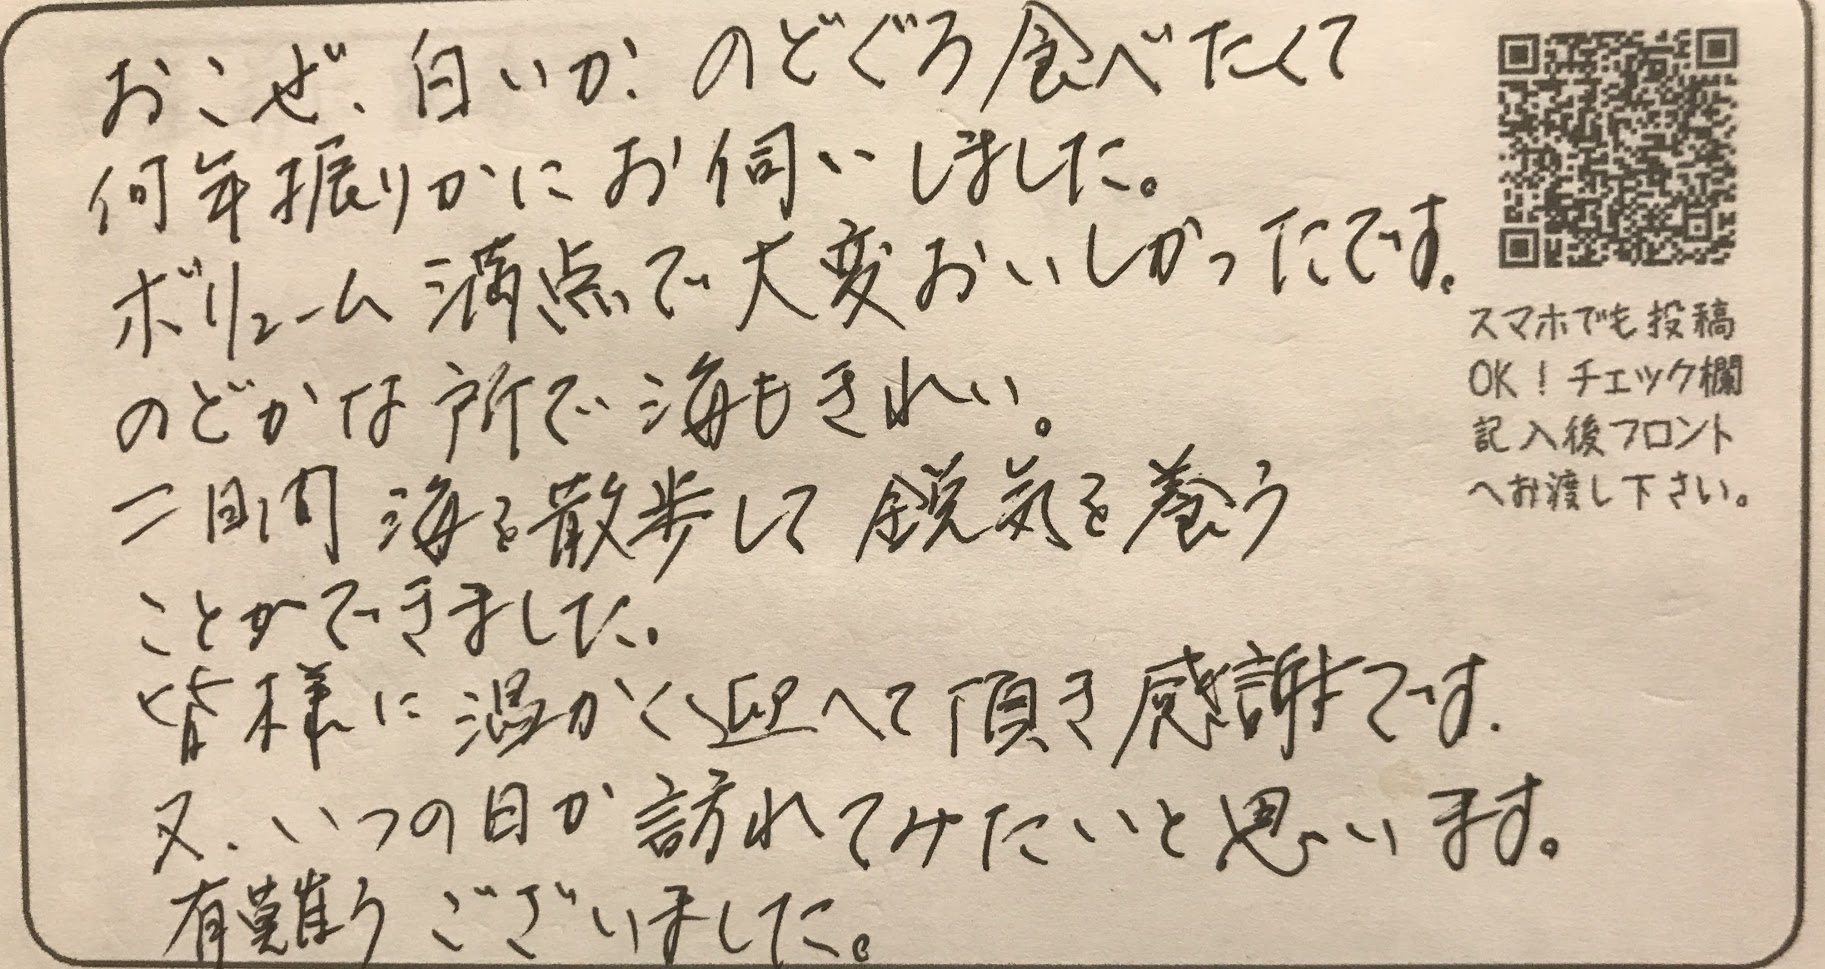 おこぜ、白いか、のどぐろ食べたくて
何年振りかにお伺いしました。
ボリューム満点で大変おいしかったです。
のどかな所で海もきれい。
二日間海を散歩して鋭気を養う
ことができました。
皆様に温かく迎へて頂き感謝です.
又、いつの日か訪れてみたいと思います。
有難うございました。
スマホでも投稿
OK！チェック欄
記入後フロント
へお渡し下さい。